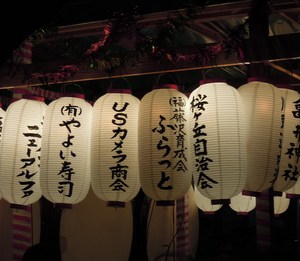 ニューアルファ
(有)やよい寿司
USカメラ商会
(福)藤沢育成会
ぷらっと
桜ヶ丘自治会
神社